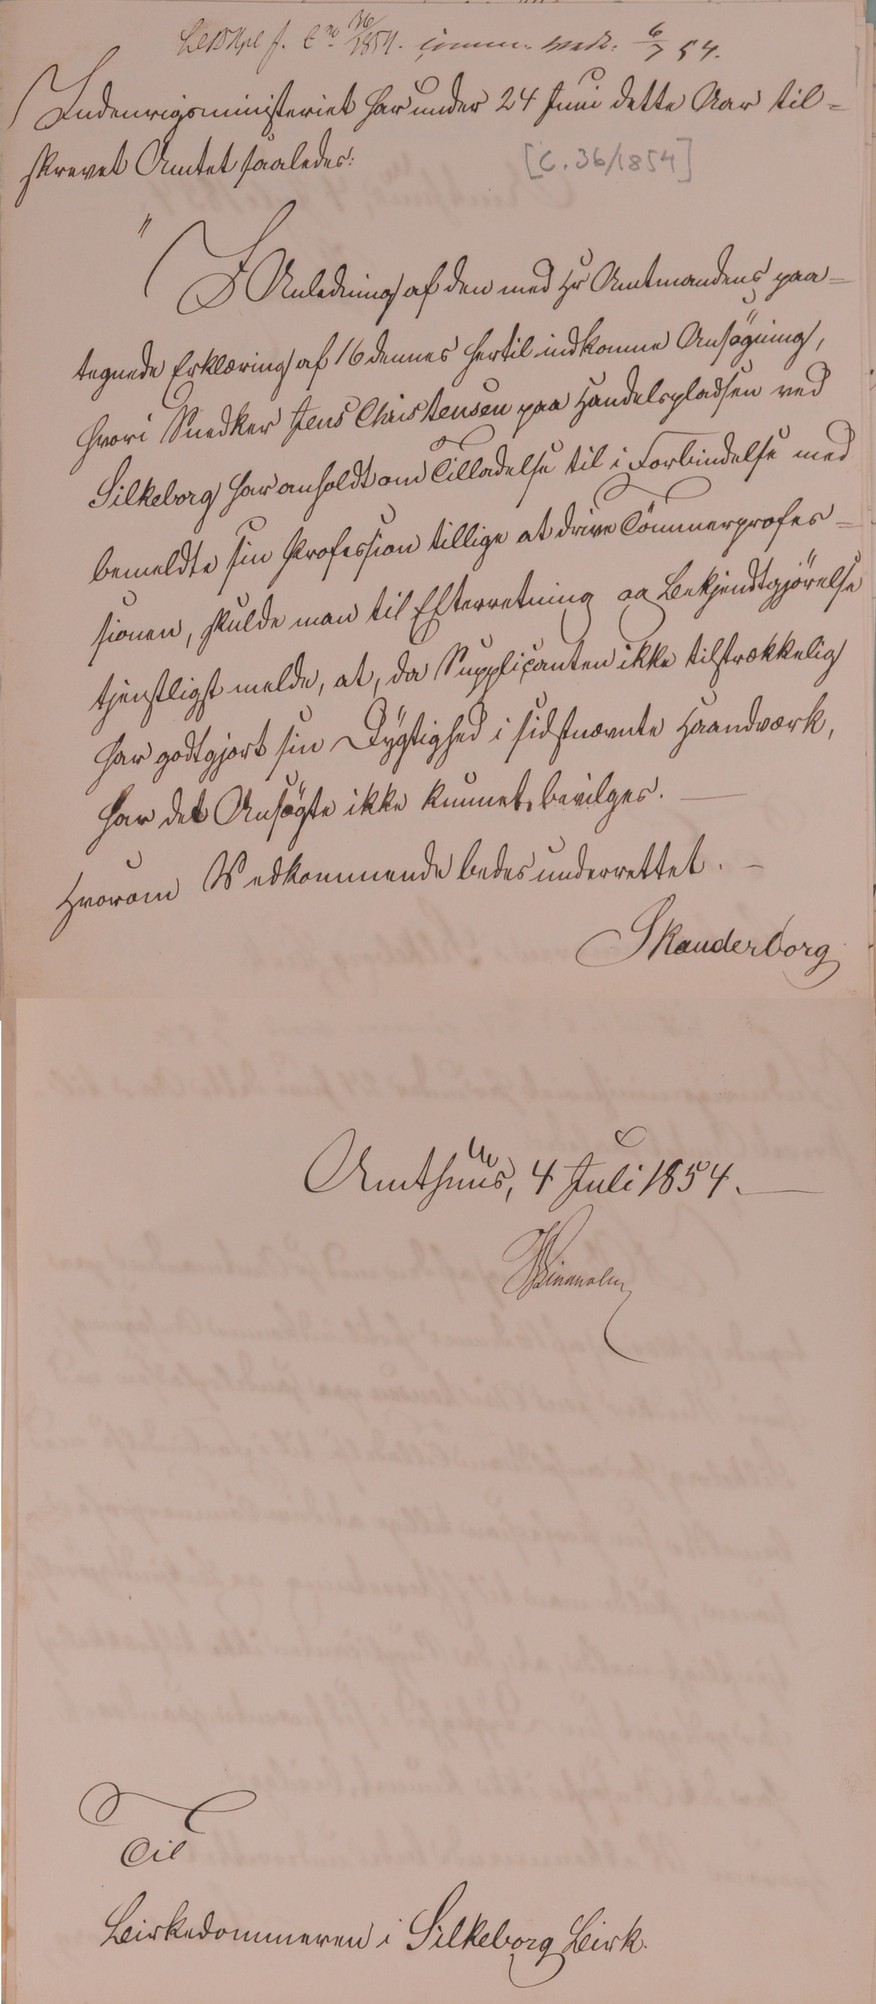 36/1854. 6/7 54.
Indenrigsministeriet har under 24 Juni dette Aar til=
skrevet Amtet saaledes:
[C. 36/1854]
"I Anledning af den med Hr Amtmandens paa=
tegnede Erklæring af 16 dennes hertil indkomne Ansøgning,
hvori Snedker Jens Christensen paa Handelspladsen ved
Silkeborg har anholdt om Tilladelse til i Forbindelse med
bemeldte sin Profession tillige at drive Tømmerprofes=
sionen, skulde man til Efterretning og Bekjendtgjørelse
tjenstligst melde, at, da Supplicanten ikke tilstrækkelig
har godtgjort sin Dygtighed i sidstnævnte Haandværk,
har det Ansøgte ikke kunnet bevilges. —
Hvorom Vedkommende bedes underrettet. —
Skanderborg
Amthuus, 4 Juli 1854. —
Til
Birkedommeren i Silkeborg Birk.